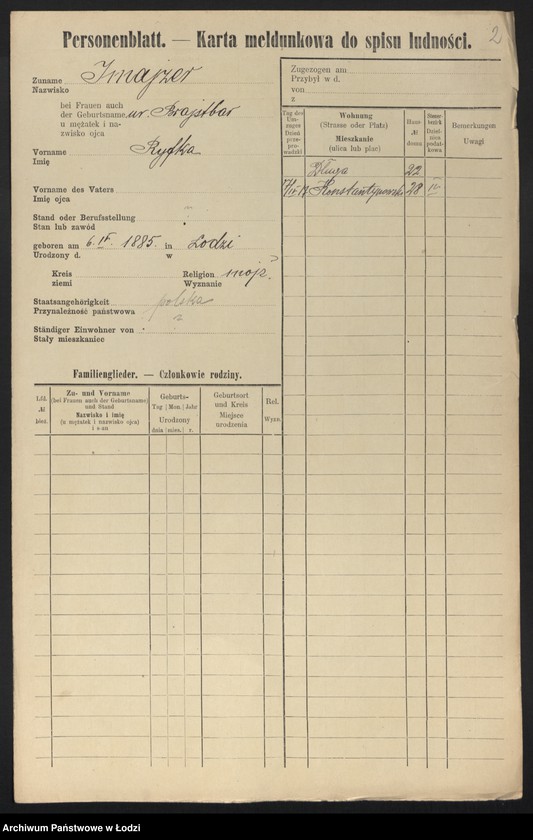 2
Personenblatt. — Karta meldunkowa do spisu ludności.
Zuname
Nazwisko
bei Frauen auch
der Geburtsname ur. Brajtbar
u mężatek i na-
zwisko ojca
Vorname Ryfka
Imię
Vorname des Vaters
Imię ojca
Stand oder Berufsstellung
Stan lub zawód
geboren am 6. IV. 1885. in Lodzi
Urodzony d. w
Kreis Religion mojż.
ziemi Wyznanie
Staatsangehörigkeit polska
Przynależność państwowa
Ständiger Einwohner von
Stały mieszkaniec
Zugezogen am
Przybył w d.
von
z
Tag des
Um-
zuges
Dzień
prze-
prowadzki
Wohnung
(Strasse oder Platz)
Mieszkanie
(ulica lub plac)
Haus-
№
domu
Steuer-
bezirk
Dziel-
nica
podat-
kowa
Bemerkungen
Uwagi
Długa 22
28 IV
Familienglieder. — Członkowie rodziny.
Lfd.
№
bież.
Zu- und Vorname
(bei Frauen auch der Geburtsname)
und Stand
Nazwisko i imię
(u mężatek i nazwisko ojca)
i stan
Geburts-
Tag Mon. Jahr
Urodzony
dnia mies. r.
Geburtsort
und Kreis
Miejsce
urodzenia
Rel.
Wyzn.
Archiwum Państwowe w Łodzi